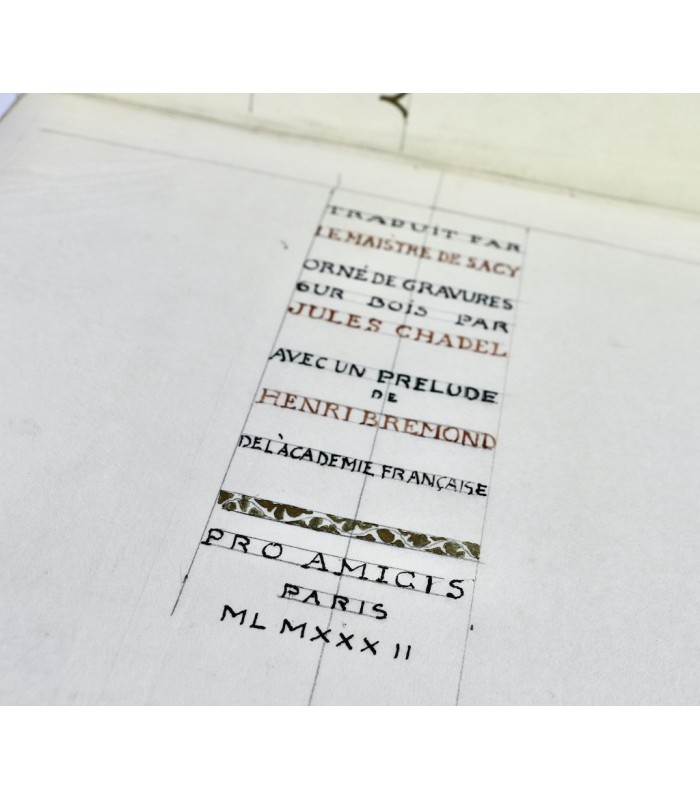 TRADUIT PAR
LE MAISTRE DE SACY
ORNÉ DE GRAVURES
SUR BOIS PAR
JULES CHADEL
AVEC UN PRELUDE
DE
HENRI BREMOND
DE L'ÀCADEMIE FRANÇAISE
PRO AMICIS
PARIS
ML MXXX II